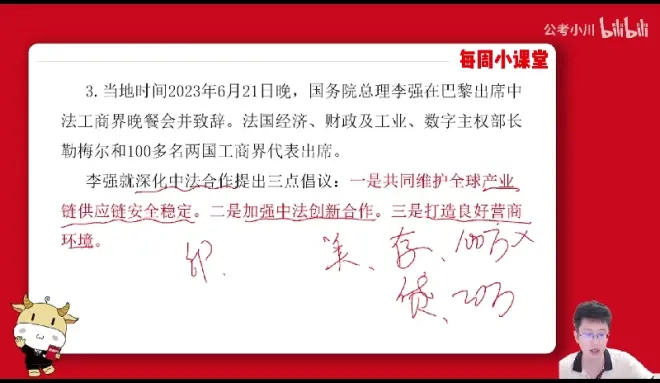 公考小川 bilibili
每周小课堂
3.当地时间2023年6月21日晚，国务院总理李强在巴黎出席中
法工商界晚餐会并致辞。法国经济、财政及工业、数字主权部长
勒梅尔和100多名两国工商界代表出席。
李强就深化中法合作提出三点倡议：一是共同维护全球产业
链供应链安全稳定。二是加强中法创新合作。三是打造良好营商
环境。
印、 美、存、100万×
贷、20万